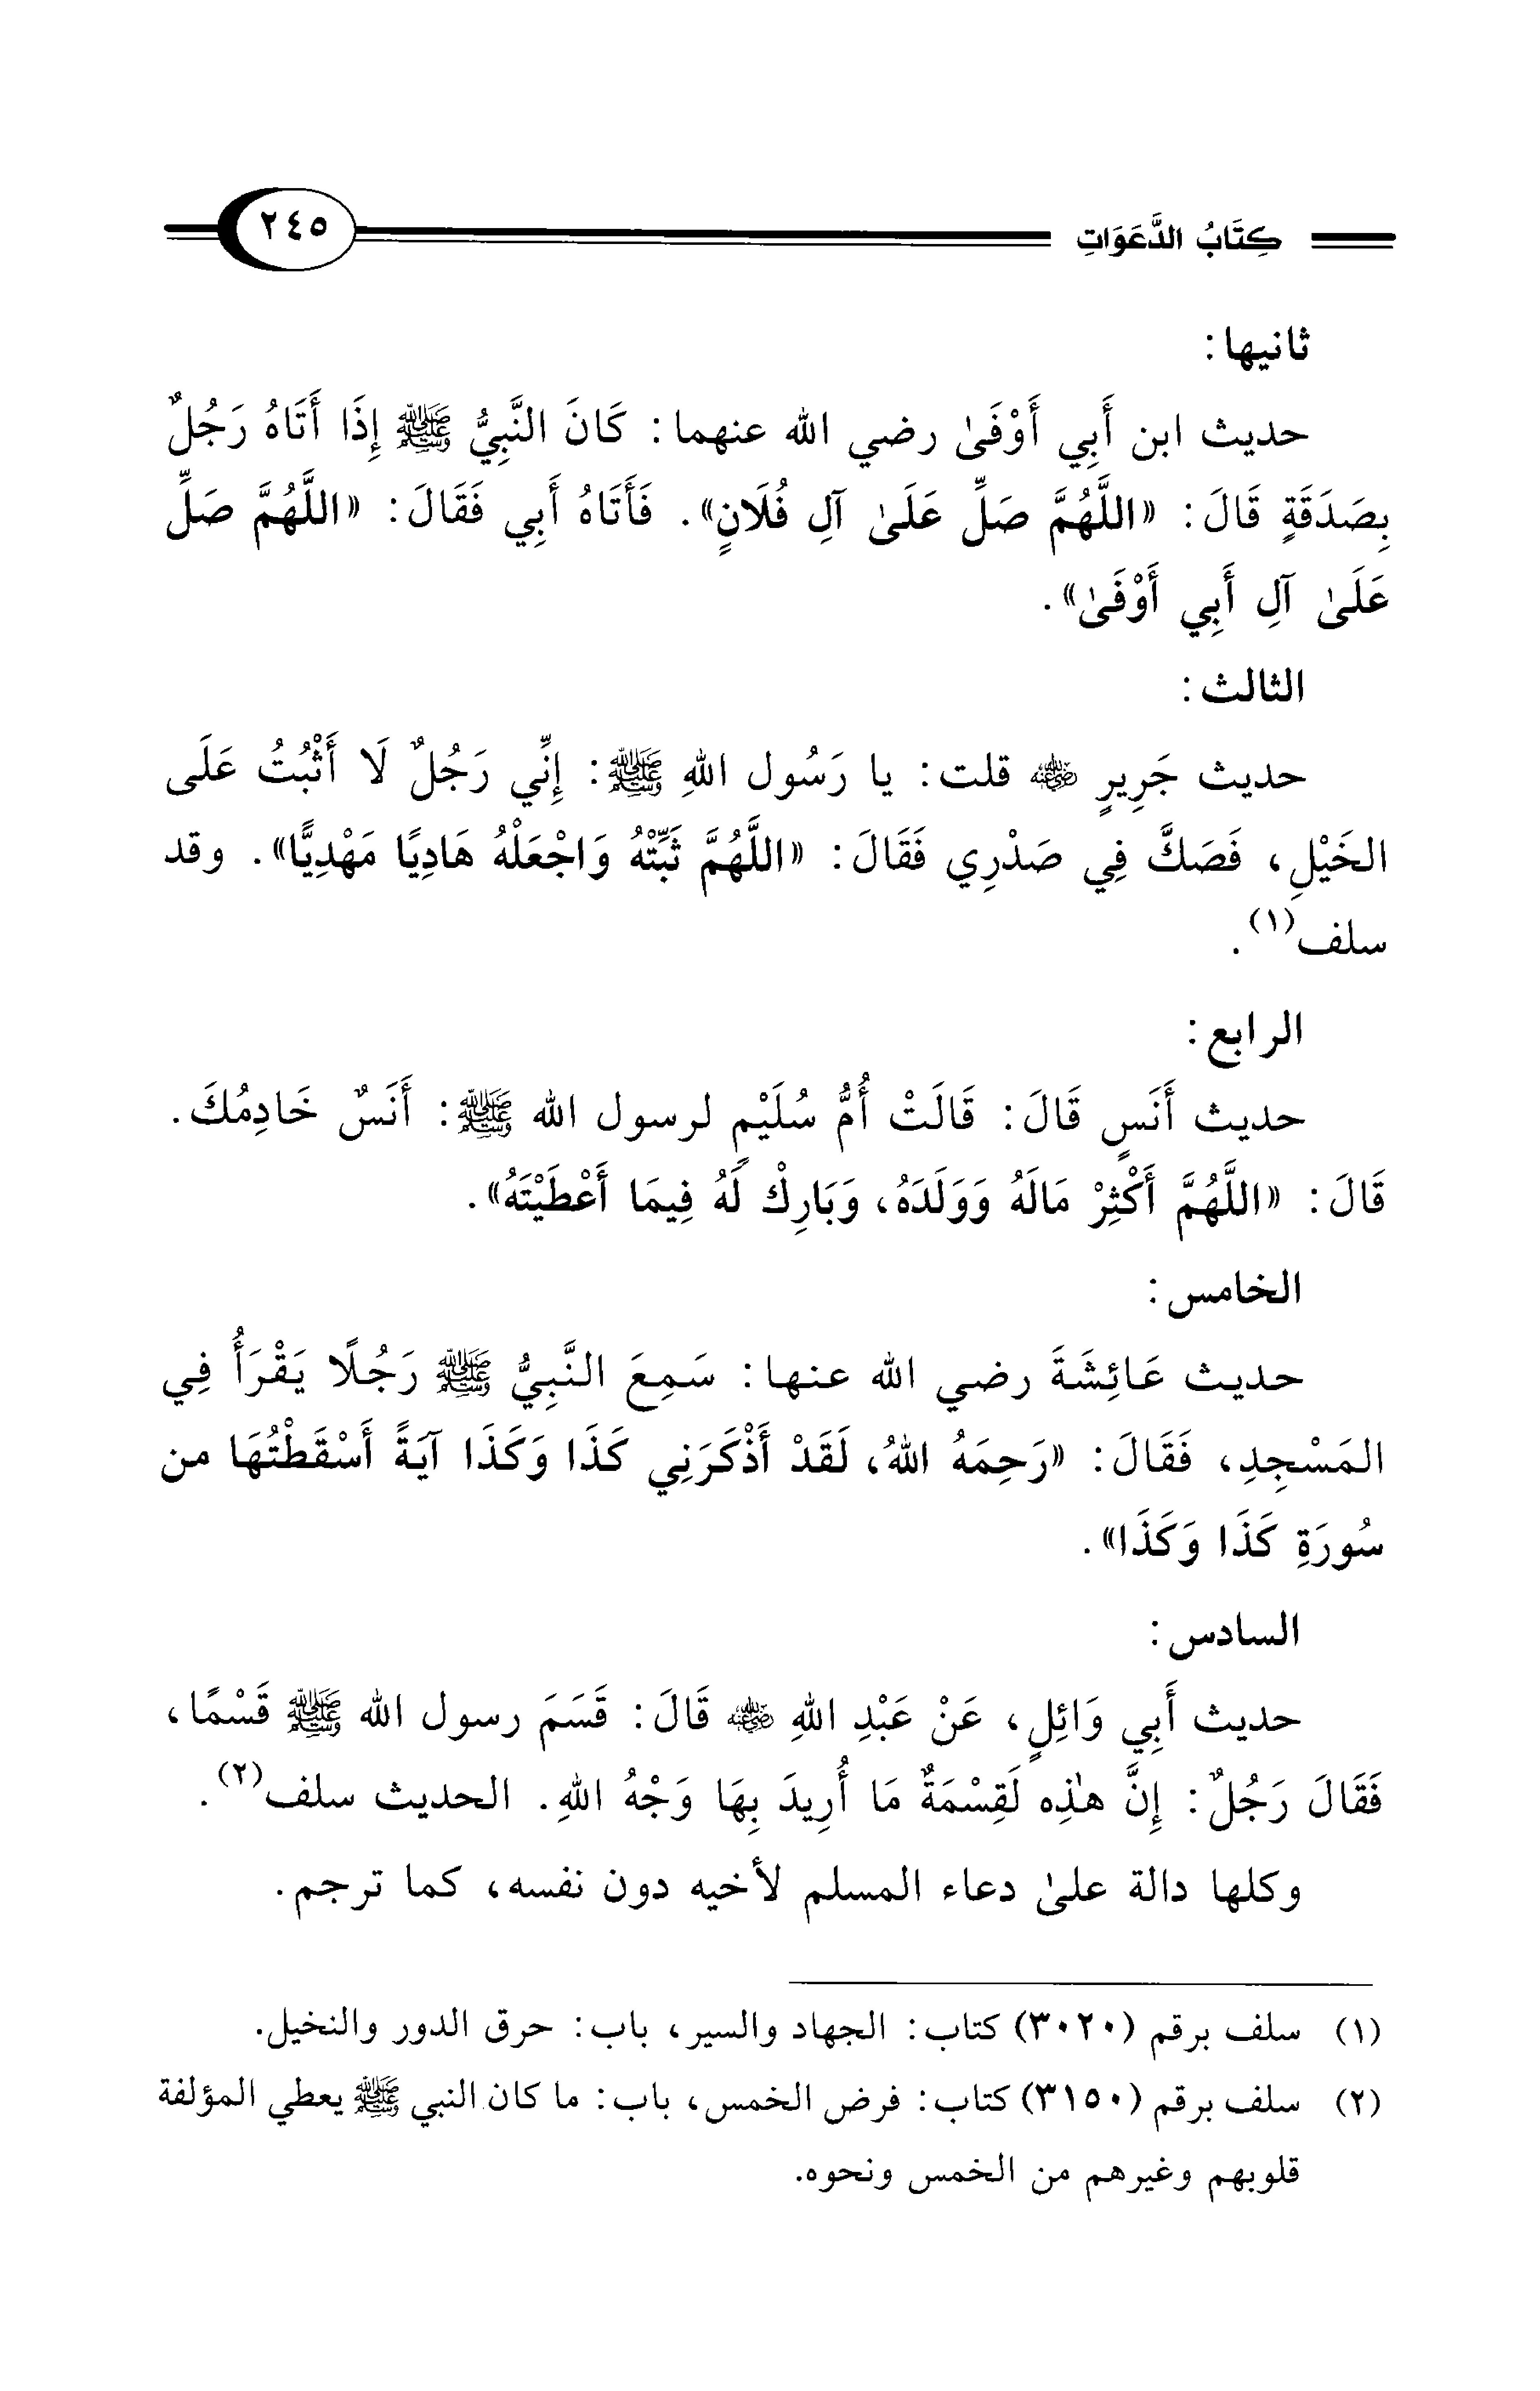 كِتَابُ الدَّعَوَاتِ ٢٤٥
ثانيها:
حديث ابن أَبِي أَوْفَىٰ رضي الله عنهما: كَانَ النَّبِيُّ ﷺ إِذَا أَتَاهُ رَجُلٌ
بِصَدَقَةٍ قَالَ: «اللَّهُمَّ صَلِّ عَلَىٰ آلِ فُلَانٍ». فَأَتَاهُ أَبِي فَقَالَ: «اللَّهُمَّ صَلِّ
عَلَىٰ آلِ أَبِي أَوْفَىٰ».
الثالث:
حديث جَرِيرٍ رضي الله عنه قلت: يا رَسُول اللهِ ﷺ: إِنِّي رَجُلٌ لَا أَثْبُتُ عَلَى
الخَيْلِ، فَصَكَّ فِي صَدْرِي فَقَالَ: «اللَّهُمَّ ثَبِّتْهُ وَاجْعَلْهُ هَادِيًا مَهْدِيًّا». وقد
سلف(١).
الرابع:
حديث أَنَسٍ قَالَ: قَالَتْ أُمُّ سُلَيْمٍ لرسول الله ﷺ: أَنَسٌ خَادِمُكَ.
قَالَ: «اللَّهُمَّ أَكْثِرْ مَالَهُ وَوَلَدَهُ، وَبَارِكْ لَهُ فِيمَا أَعْطَيْتَهُ».
الخامس:
حديث عَائِشَةَ رضي الله عنها: سَمِعَ النَّبِيُّ ﷺ رَجُلًا يَقْرَأُ فِي
المَسْجِدِ، فَقَالَ: «رَحِمَهُ اللهُ، لَقَدْ أَذْكَرَنِي كَذَا وَكَذَا آيَةً أَسْقَطْتُهَا من
سُورَةِ كَذَا وَكَذَا».
السادس:
حديث أَبِي وَائِلٍ، عَنْ عَبْدِ اللهِ رضي الله عنه قَالَ: قَسَمَ رسول الله ﷺ قَسْمًا،
فَقَالَ رَجُلٌ: إِنَّ هٰذِه لَقِسْمَةٌ مَا أُرِيدَ بِهَا وَجْهُ اللهِ. الحديث سلف(٢).
وكلها دالة علىٰ دعاء المسلم لأخيه دون نفسه، كما ترجم.
(١) سلف برقم (٣٠٢٠) كتاب: الجهاد والسير، باب: حرق الدور والنخيل.
(٢) سلف برقم (٣١٥٠) كتاب: فرض الخمس، باب: ما كان النبي ﷺ يعطي المؤلفة
قلوبهم وغيرهم من الخمس ونحوه.